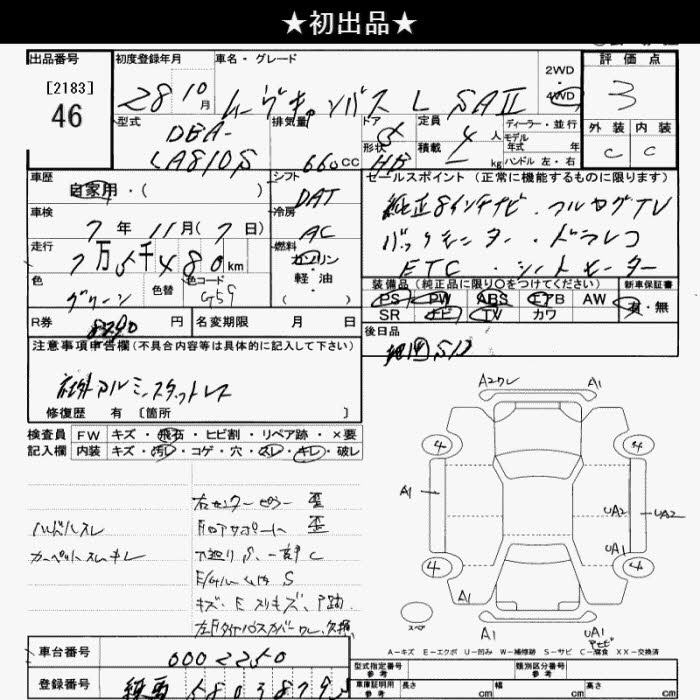 ★初出品★
出品番号
[2183]
46
初度登録年月
28 10月
車名・グレード
ムーヴキャンバス L SAⅡ
2WD
4WD
評価点
3
外装 内装
C C
型式
DBA-
LA810S
排気量
660cc
ドア
形状
HB
定員
4人
積載
kg
ディーラー・並行
モデル
年式 年
ハンドル 左・右
車歴
自家用・( )
車検
7年 11月(7日)
走行
7万5千480km
色
グリーン
色替
色コード
G59
シフト
DAT
冷房
AC
燃料
ガソリン
・
軽油
( )
セールスポイント (正常に機能するものに限ります)
純正8インチナビ・フルセグTV
バックモニター・ドラレコ
ETC・シートヒーター
装備品(純正品に限り○をつけてください)
新車保証書
PS PW ABS エアB AW
SR ナビ TV カワ
有・無
R券
8290円
名変期限 月 日
後日品
注意事項申告欄(不具合内容等は具体的に記入して下さい)
社外アルミ、スタットレス
修復歴 有 〔箇所 〕
検査員
記入欄
FW キズ・飛石・ヒビ割・リペア跡・×要
内装 キズ・汚レ・コゲ・穴・スレ・キレ・破レ
ハンドルスレ
カーペットスレキレ
右センターピラー 歪
下廻り S、一部 C
A2クレ A1
4 4
A1 UA2 UA2
UA1
4 4
A1
スペア
A1 UA1
A-キズ E-エクボ U-凹み W-補修跡 S-サビ C-腐食 XX-交換済
車台番号
0002250
登録番号
型式指定番号
参考
類別区分番号
参考
車庫証明用
参考
長さ cm 幅 cm 高さ cm